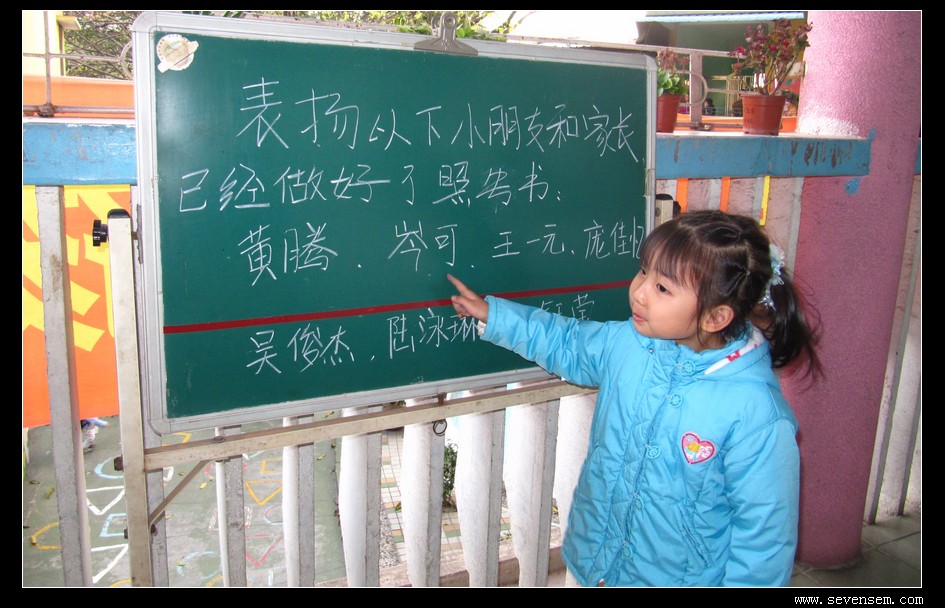 表扬以下小朋友和家长,
已经做好了照台书:
黄腾. 岑可. 王一元、庞佳
吴俊杰, 陆泳琳 莹
www.sevensem.com